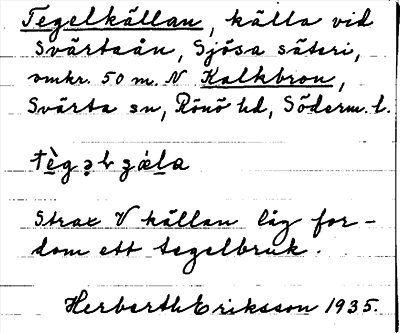 Tegelkällan, källa vid
Svärtaån, Sjösa säteri,
omkr. 50 m. N Kalkbron,
Svärta sn, Rönö hd, Söderm. l.
tègəlɡäla
Strax V källan låg for-
dom ett tegelbruk.
Herberth Eriksson 1935.